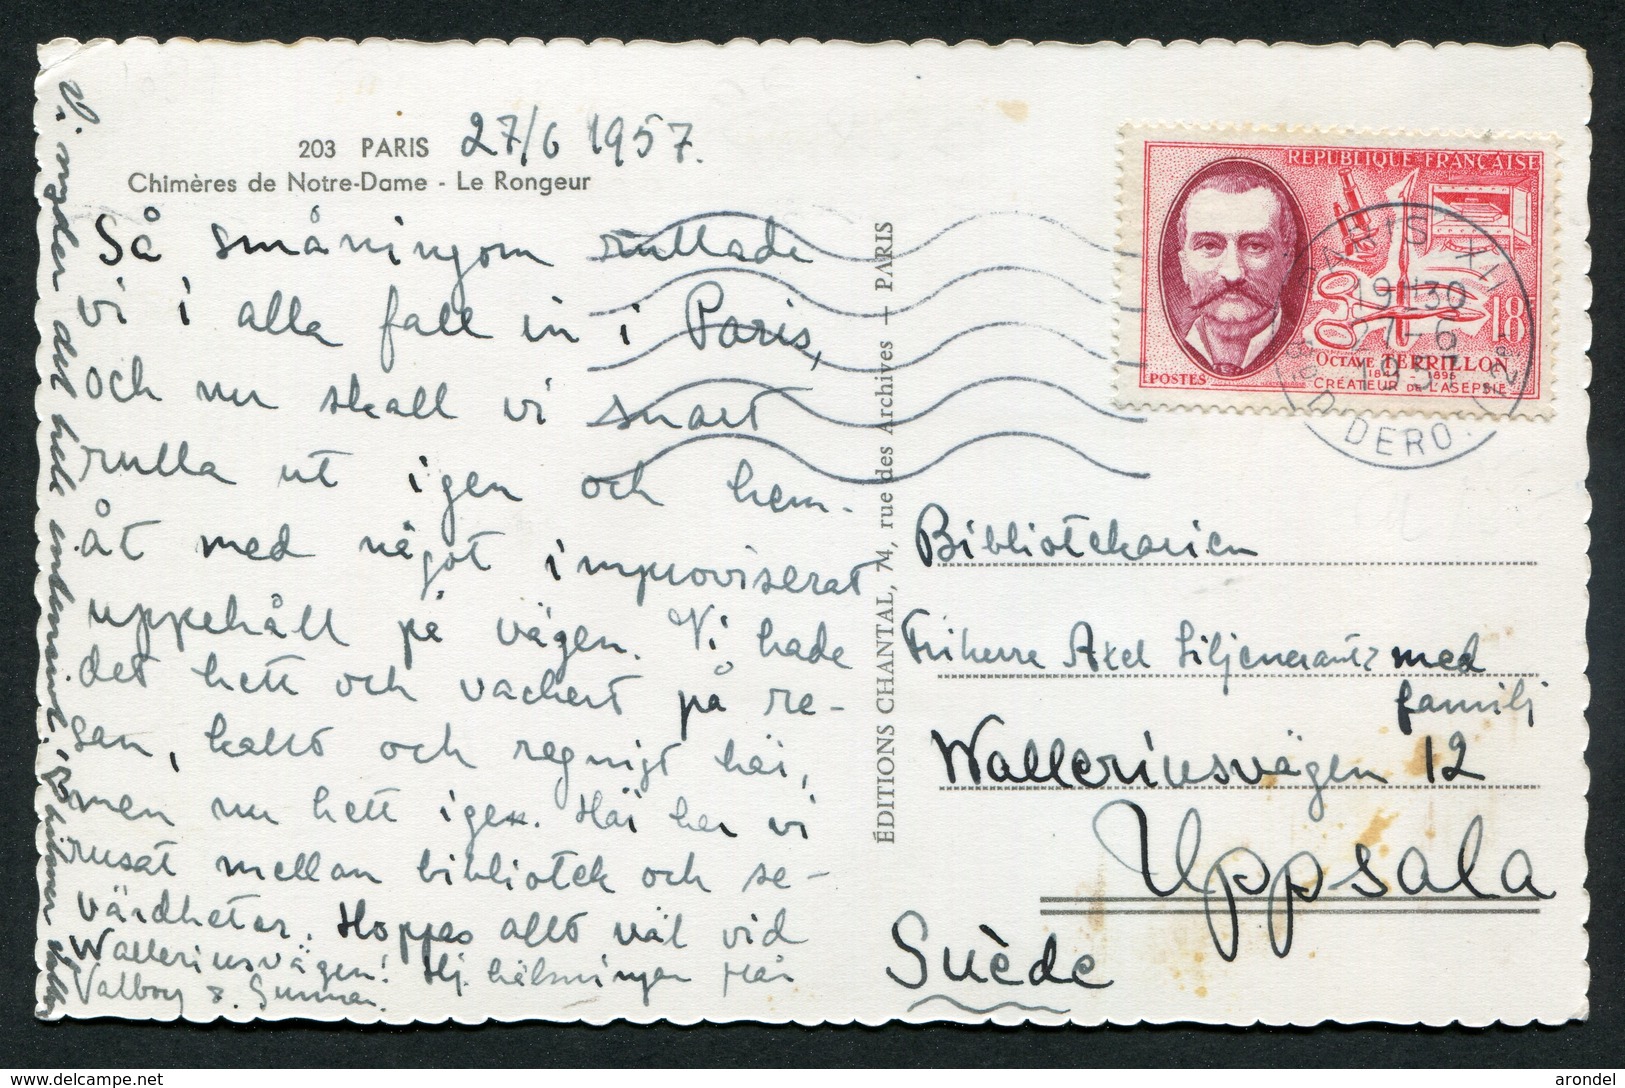 203 PARIS 27/6 1957.
Chimères de Notre-Dame - Le Rongeur
Så småningom rullade
vi i alla fall in i Paris,
och nu skall vi snart
rulla ut igen och hem-
åt med något improviserat
uppehåll på vägen. Vi hade
det hett och vackert på re-
san, kallt och regnigt här,
men nu hett igen. Här har vi
rusat mellan bibliotek och se-
värdheter. Hoppas allt väl vid
Walleriusvägen! Hj. hälsningar från
Valborg & Gunnar.
Vi
det hela
ÉDITIONS CHANTAL, 74, rue des Archives - PARIS
REPUBLIQUE FRANÇAISE
18F
OCTAVE TERRILLON
1844 1895
CRÉATEUR DE L'ASEPSIE
POSTES
PARIS XII
19H30
27-6
1957
DIDEROT
Bibliotekarien
Friherre Axel Liljencrantz med
familj
Walleriusvägen 12
Uppsala
Suède
arondel